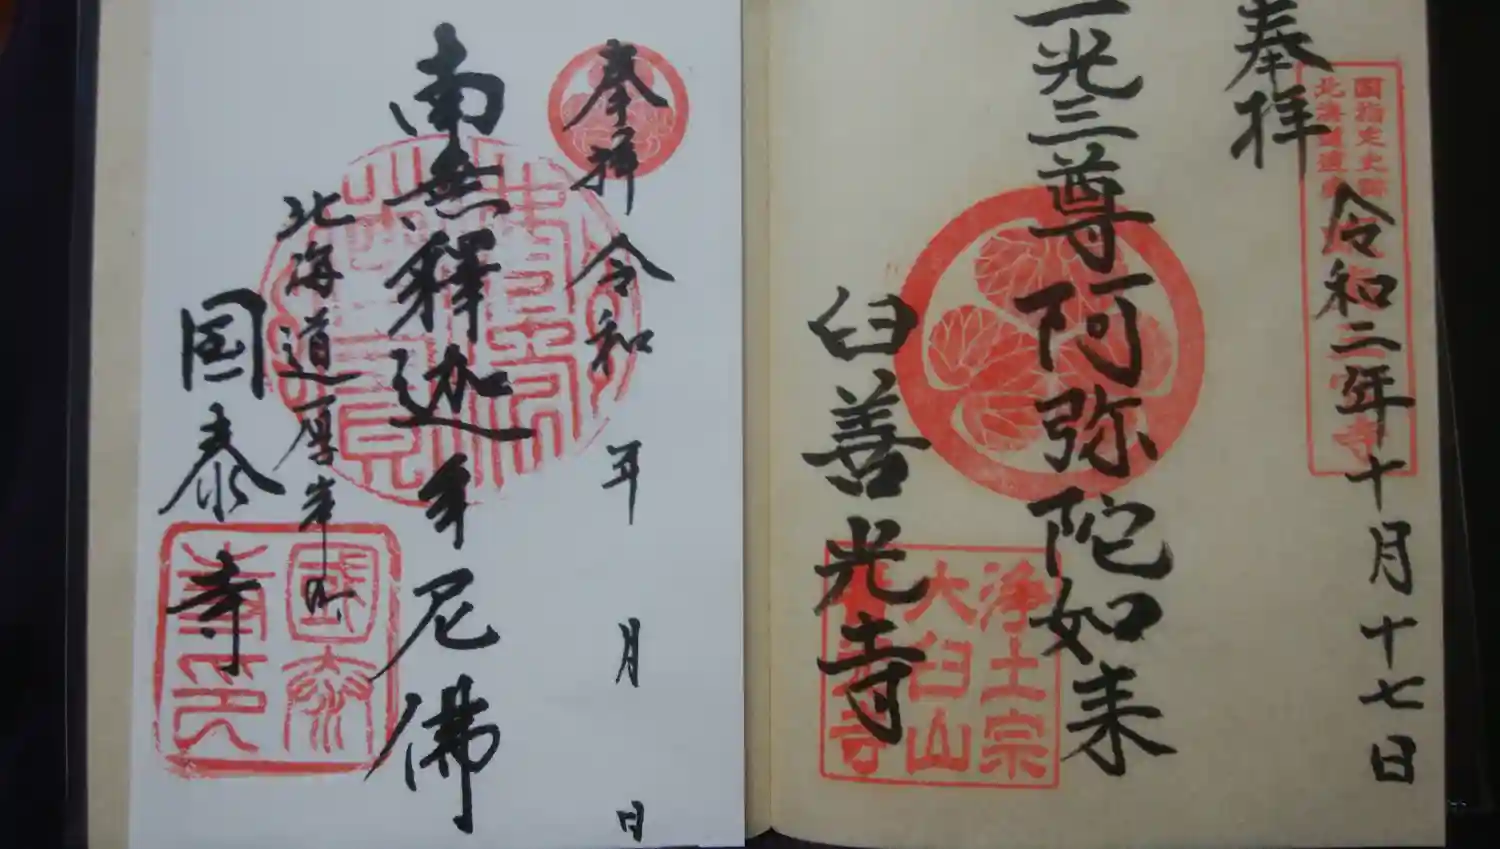 奉拝
国指定史跡
北海道遺産
令和二年十月十七日
一光三尊阿弥陀如来
臼善光寺
浄土宗
大臼山
善光寺
奉拝
令和 年 月 日
南無釋迦牟尼佛
北海道厚岸町
国泰寺
國泰